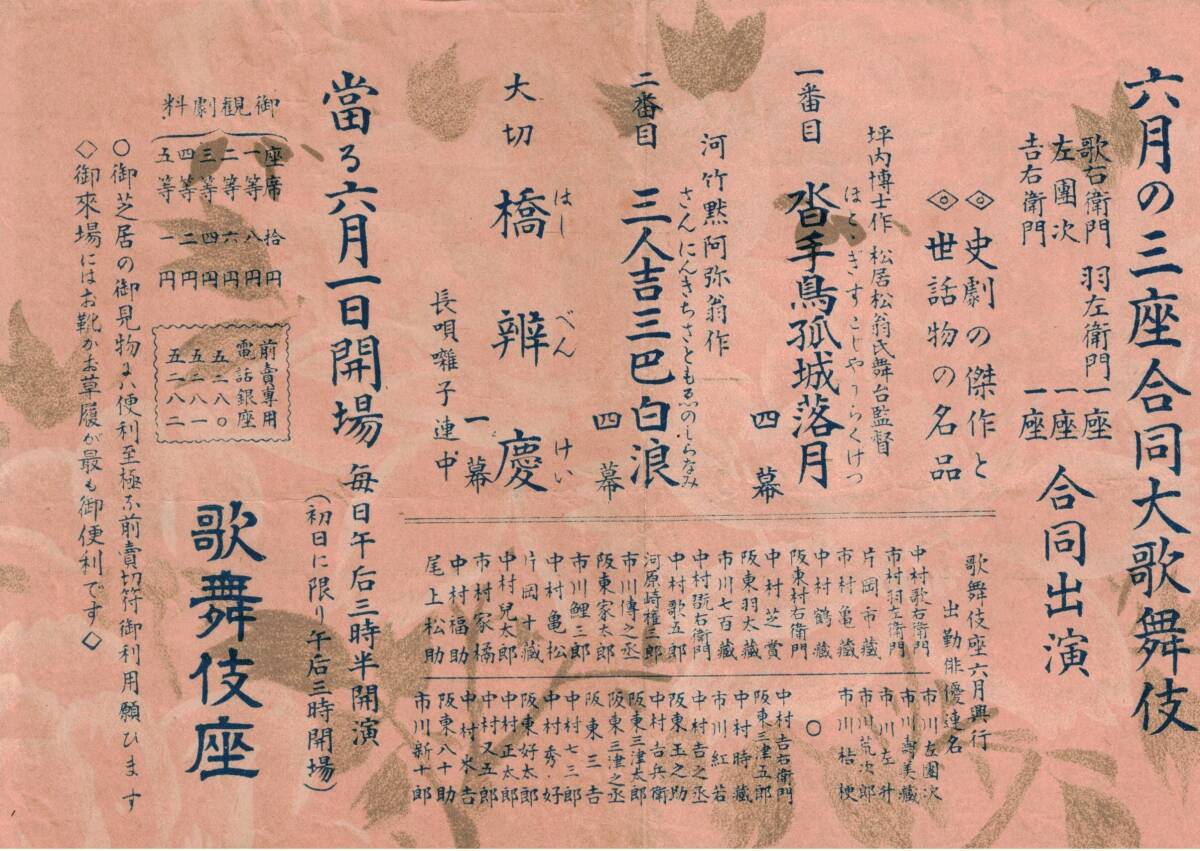 六月の三座合同大歌舞伎
歌右衛門 羽左衛門 一座
左團次 一座
吉右衛門 一座
合同出演
◇史劇の傑作と
◇世話物の名品
坪内博士作 松居松翁氏舞台監督
ほとゝぎすこじやうらくげつ
一番目 沓手鳥孤城落月 四幕
河竹黙阿弥翁作
さんにんきちさともゑのしらなみ
二番目 三人吉三巴白浪 四幕
大切 橋辨慶 一幕
はし べん けい
長唄囃子連中
歌舞伎座六月興行
出勤俳優連名
中村歌右衛門
市村羽左衛門
片岡市蔵
市村亀蔵
中村鶴蔵
阪東村右衛門
中村芝賞
阪東羽太蔵
市川七百蔵
中村翫右衛門
中村歌五郎
河原崎権三郎
市川傳之丞
阪東家太郎
市川鯉三郎
中村亀松
片岡十蔵
中村兒太郎
市村家橘
中村福助
尾上松助
市川左團次
市川壽美蔵
市川左升
市川荒次郎
市川桔梗
○
中村吉右衛門
阪東三津五郎
中村時蔵
市川紅若
中村吉之丞
阪東玉之助
中村吉兵衛
阪東三津太郎
阪東三津之丞
阪東三吉
中村七三郎
中村秀好
阪東好太郎
中村正太郎
中村又五郎
中村米吉
阪東八十助
市川新十郎
當る六月一日開場 毎日午后三時半開演
(初日に限り午后三時開場)
歌舞伎座
御観劇料
座席 拾円
一等 八円
二等 六円
三等 四円
四等 二円
五等 一円
前賣専用
電話銀座
五二八〇
五二八一
五二八二
○御芝居の御見物には便利至極な前賣切符御利用願ひます
◇御來場にはお靴かお草履が最も御便利です◇